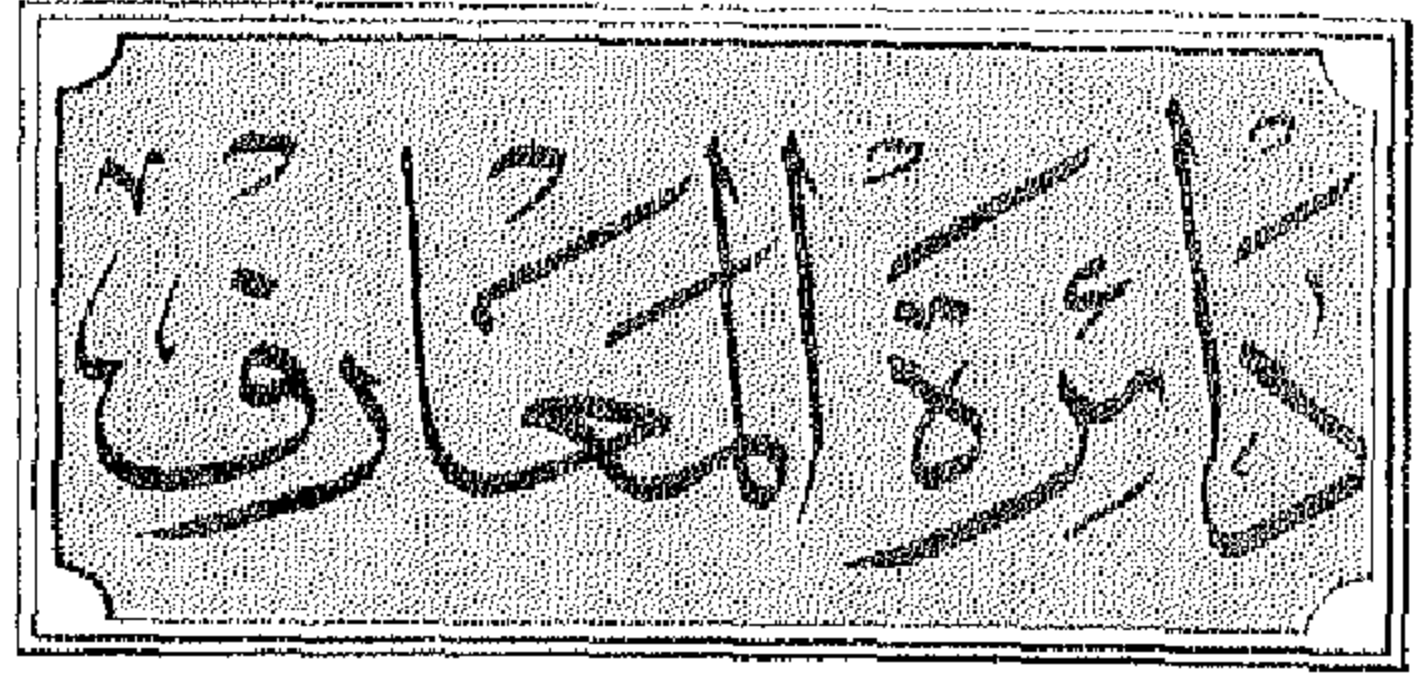 دائرة المعارف